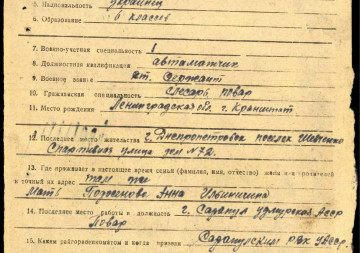 5. Национальность украинец
6. Образование 6 классов
7. Военно-учетная специальность 1
8. Должностная квалификация автоматчик
9. Военное звание ст. сержант
10. Гражданская специальность слесарь, повар
11. Место рождения Ленинградская обл. г. Кранштат
12. Последнее место жительства г. Днепропетровск поселок
Спортивная улица дом № 72.
13. Где проживает в настоящее время семья (фамилия, имя, отчество) жены или родителей
и точный их адрес там же
Мать Анна
14. Последнее место работы и должность г. Сарапул удмурская АССР
Повар
15. Каким райгорвоенкоматом и когда призван Сарапулским РВК УАССР.